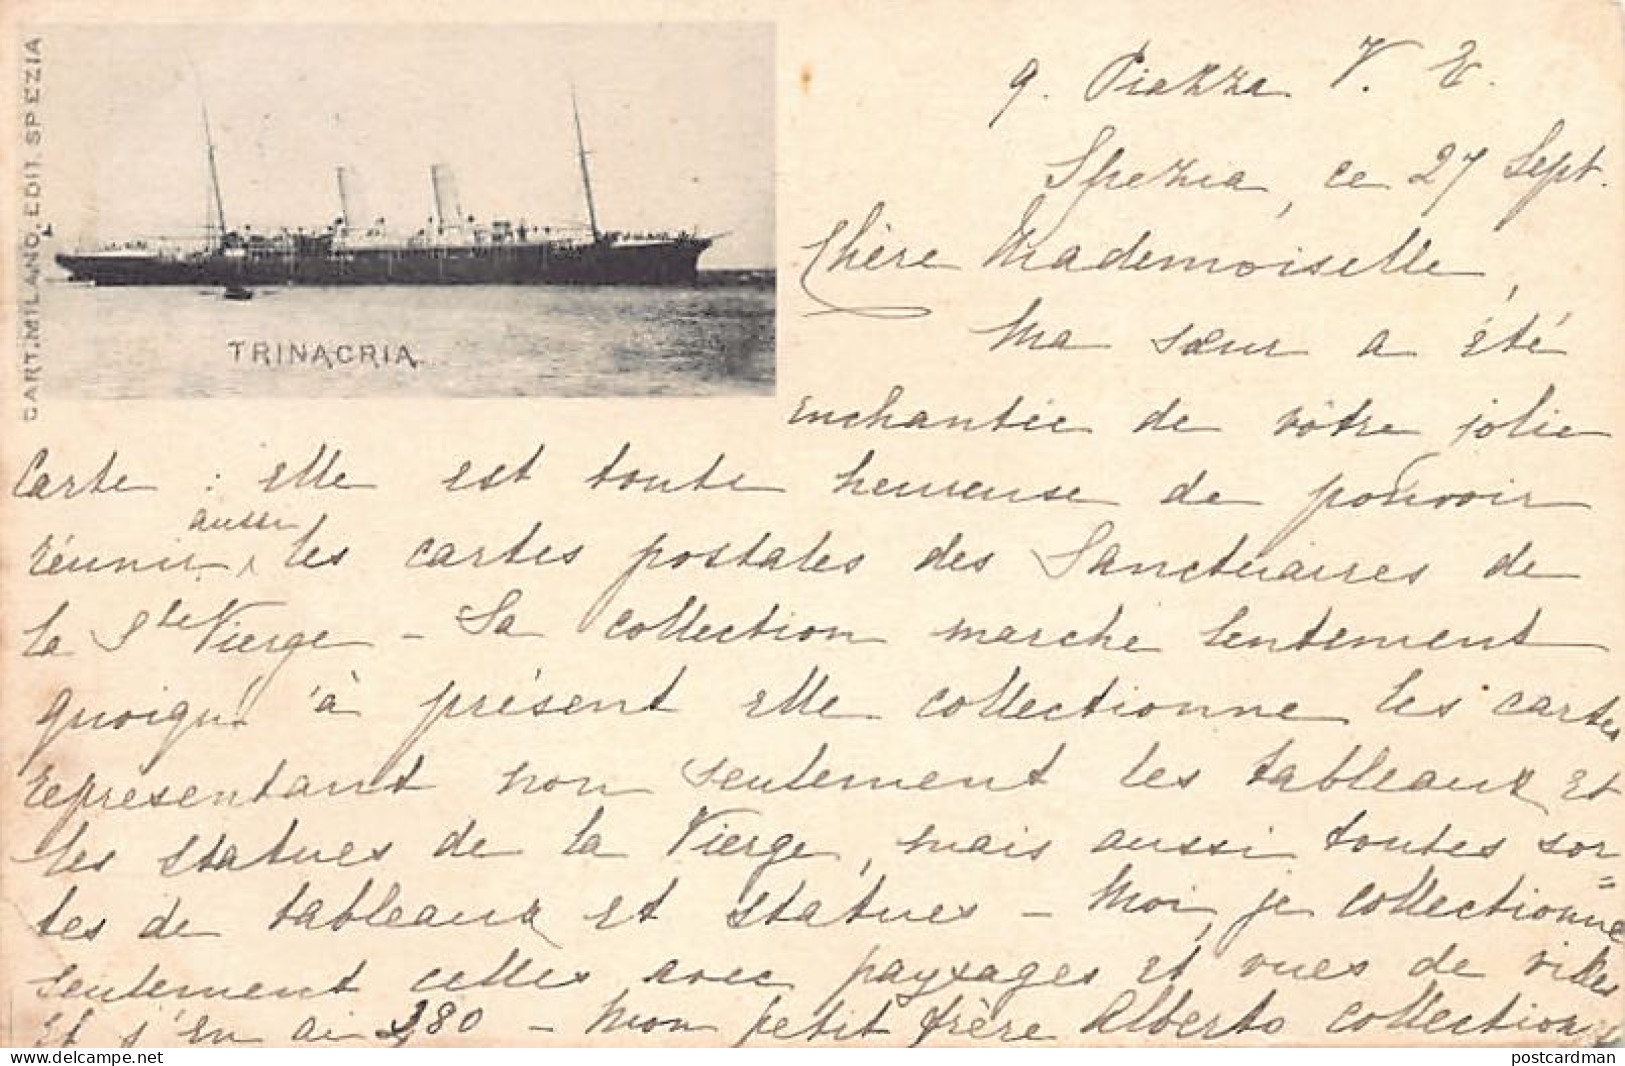 CART. MILANO. EDIT. SPEZIA
TRINACRIA
9. Piazza V. E.
Spezia, ce 27 Sept.
Chère Mademoiselle,
Ma sœur a été
enchantée de vôtre jolie
Carte : elle est toute heureuse de pouvoir
aussi
réunir ^ les cartes postales des Sanctuaires de
la Ste Vierge – Sa collection marche lentement
quoiqu' à présent elle collectionne les cartes
représentant non seulement les tableaux et
les statues de la Vierge, mais aussi toutes sor=
tes de tableaux et statues – Moi, je collectionne
seulement celles avec paysages et vues de villes
et j'en ai 380 – Mon petit frère Alberto collectionne
whatsthepicture.com
postcardman